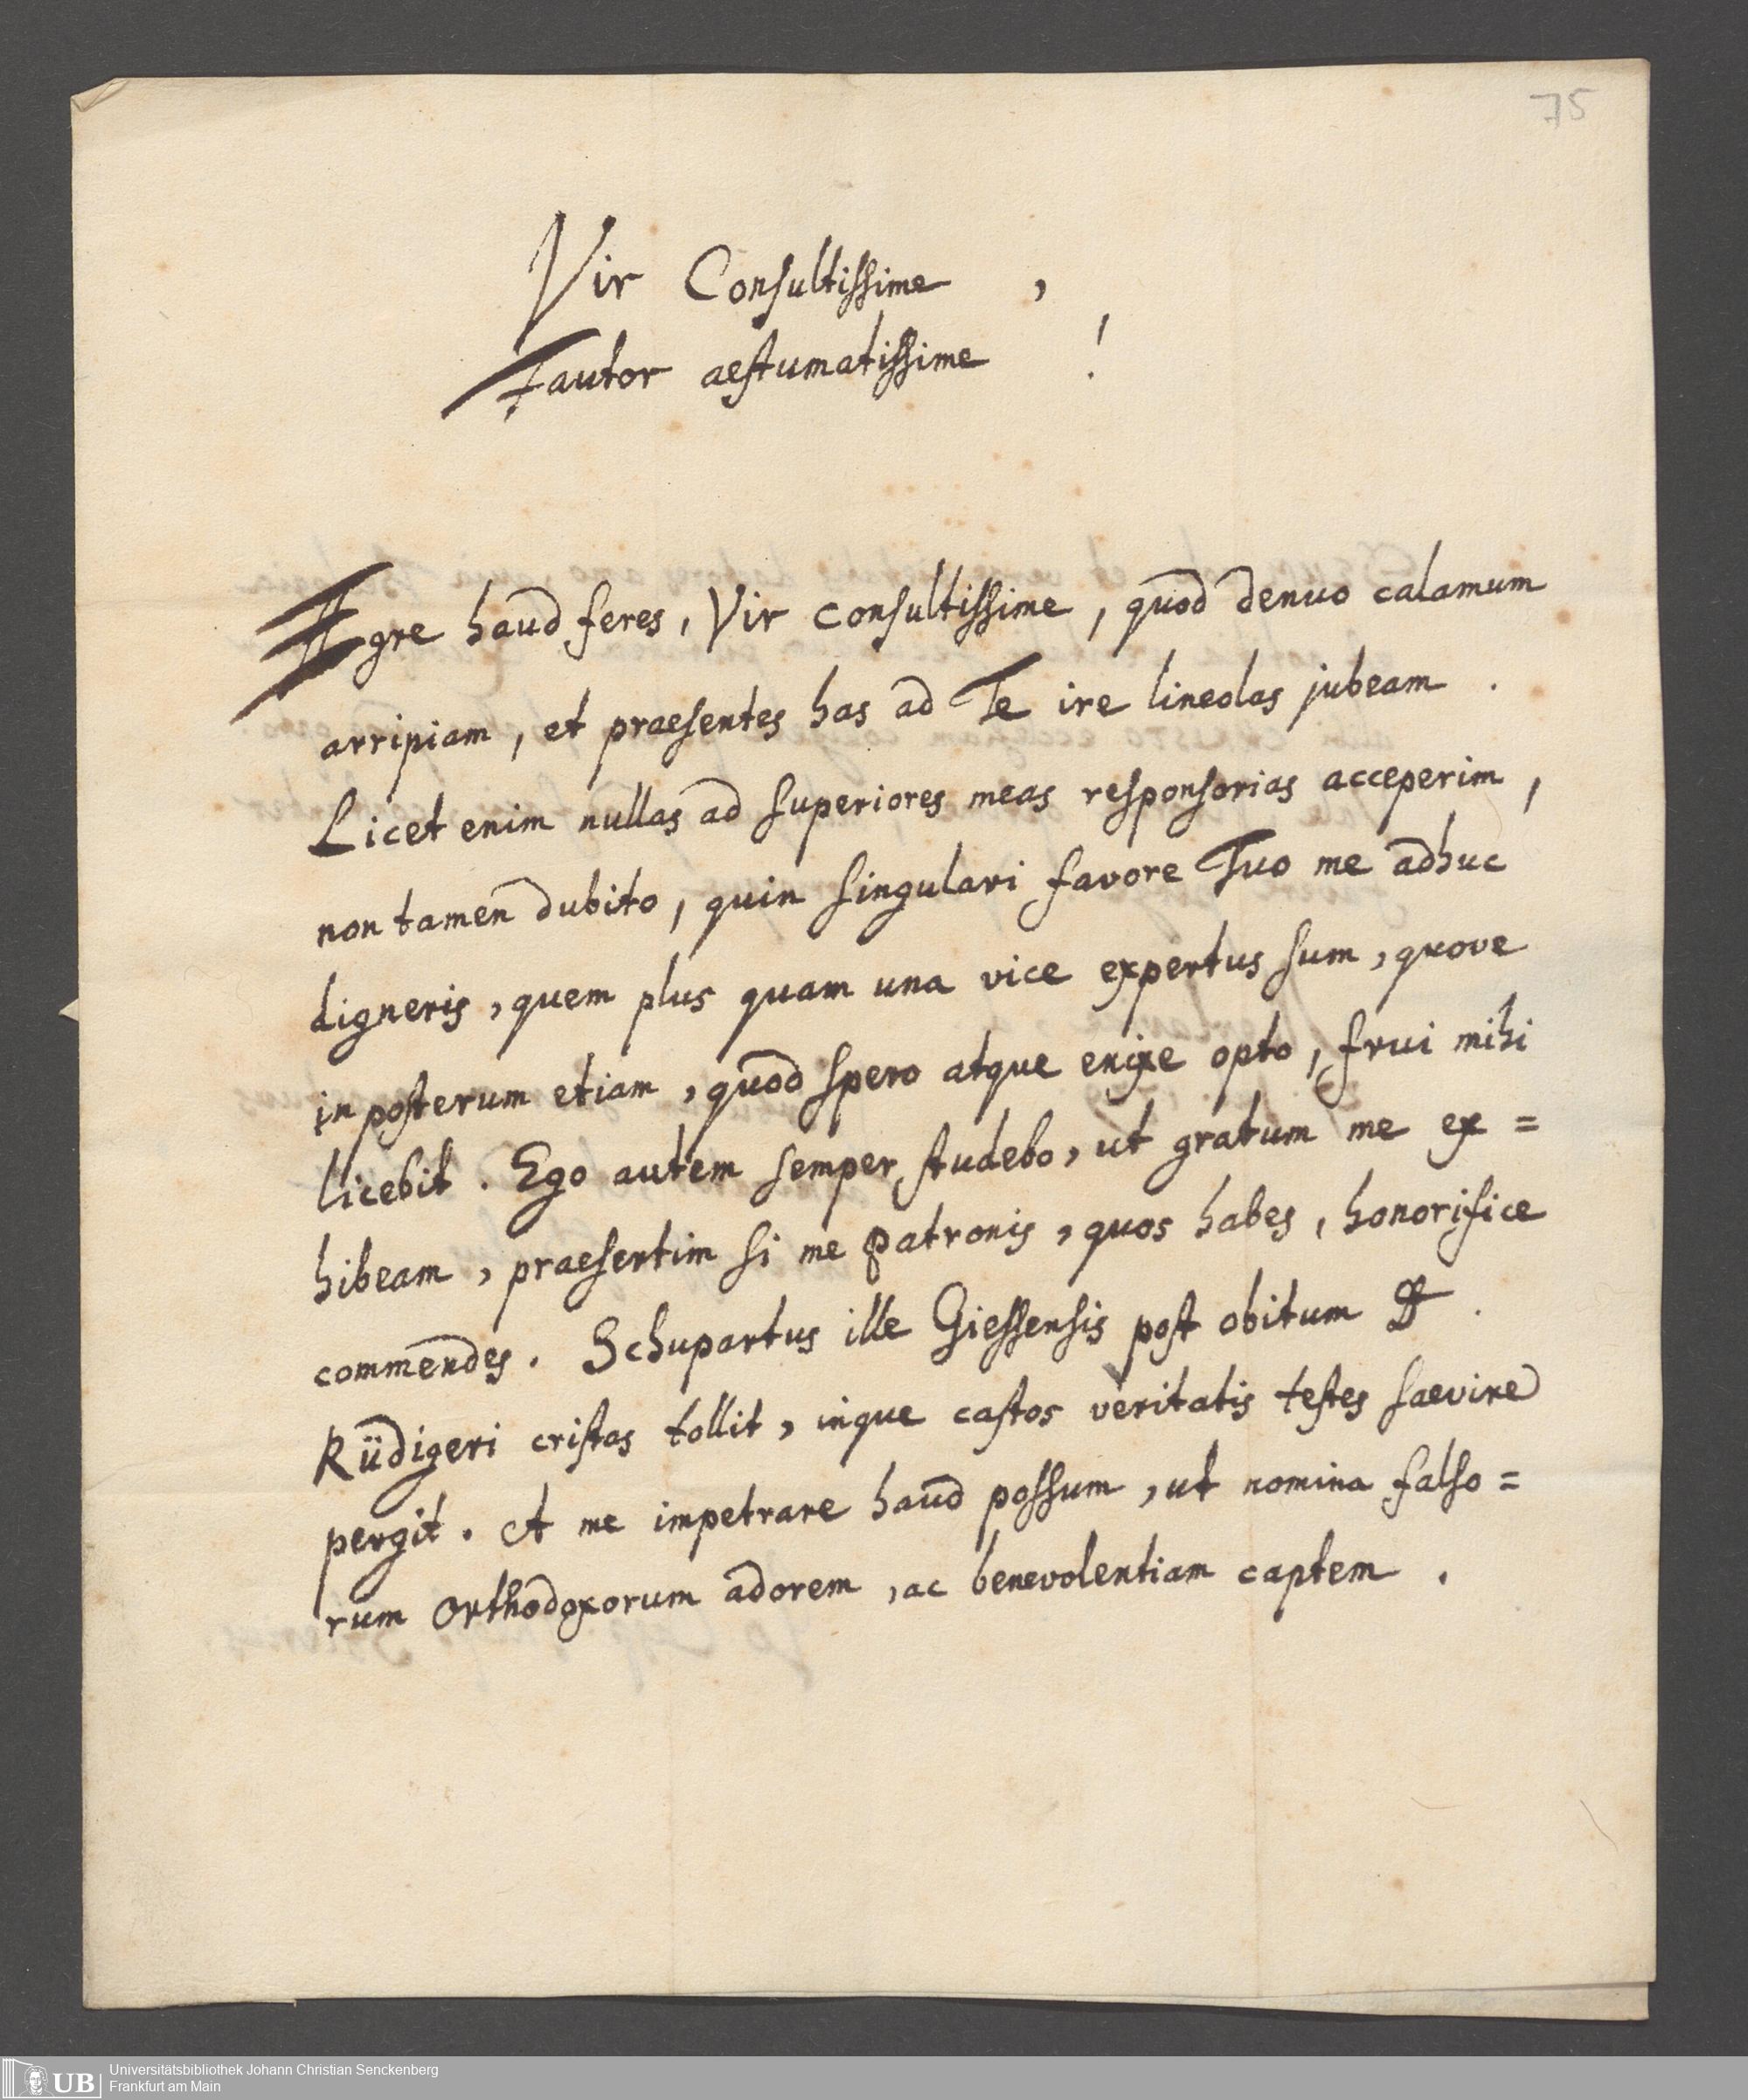 75
Vir Consultissime ,
Fautor aestumatissime !
Ægre haud feres, Vir consultissime, quod denuo calamum
arripiam, et praesentes has ad Te ire lineolas jubeam .
Licet enim nullas ad superiores meas responsorias acceperim,
non tamen dubito, quin singulari favore Tuo me adhuc
digneris, quem plus quam una vice expertus sum, quove
in posterum etiam, quod spero atque enixe opto, frui mihi
licebit. Ego autem semper studebo, ut gratum me ex=
hibeam, praesertim si me patronis, quos habes, honorifice
commendes. Schupartus ille Giessensis post obitum D .
Rüdigeri cristas tollit, inque castos veritatis testes saevire
pergit. A me impetrare haud possum, ut nomina falso=
rum orthodoxorum adorem, ac benevolentiam captem .
UB
Universitätsbibliothek Johann Christian Senckenberg
Frankfurt am Main